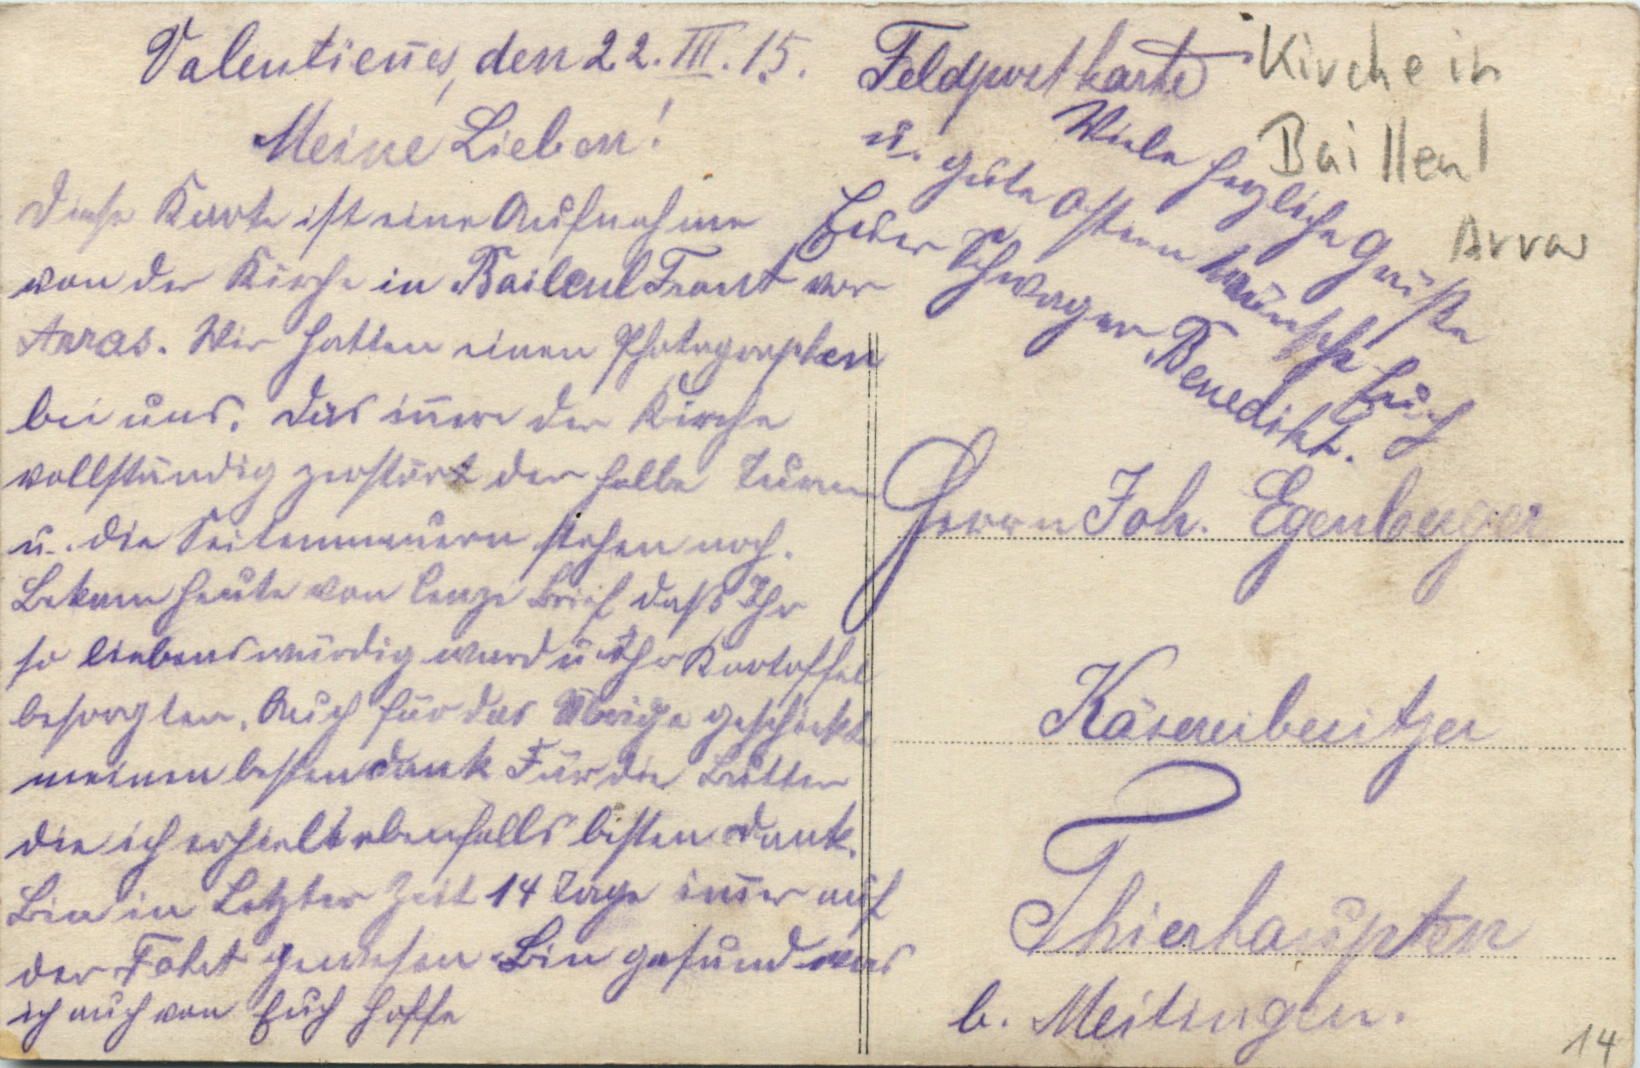 Valentienes, den 22.III.15.
Meine Lieben!
Diese Karte ist eine Aufnahme
von der Kirche in Baileul Front vor
Arras. Wir hatten einen Photographen
bei uns. Das inere der Kirche
vollständig zerstört der halbe Turm
u. die Seitenmauern stehen noch.
Bekam heute von Brief daß Ihr
so liebenswürdig ward u. Ihr Kartoffel
besorgten. Auch für das Übrige geschickte
meinen besten Dank Für die Butter
die ich erhielt ebenfalls besten Dank.
Bin in Letzter Zeit 14 Tage imer auf
der Fahrt gewesen. Bin gesund was
ich auch von Euch hoffe
Feldpostkarte
Viele herzliche Grüße
u. gute Ostern wünscht Euch
Euer Schwager Benedikt.
Herrn Joh. Egenberger
Käsereibesitzer
Thierhaupten
b. Meitingen.
Kirche in
Bailleul
Arras
14